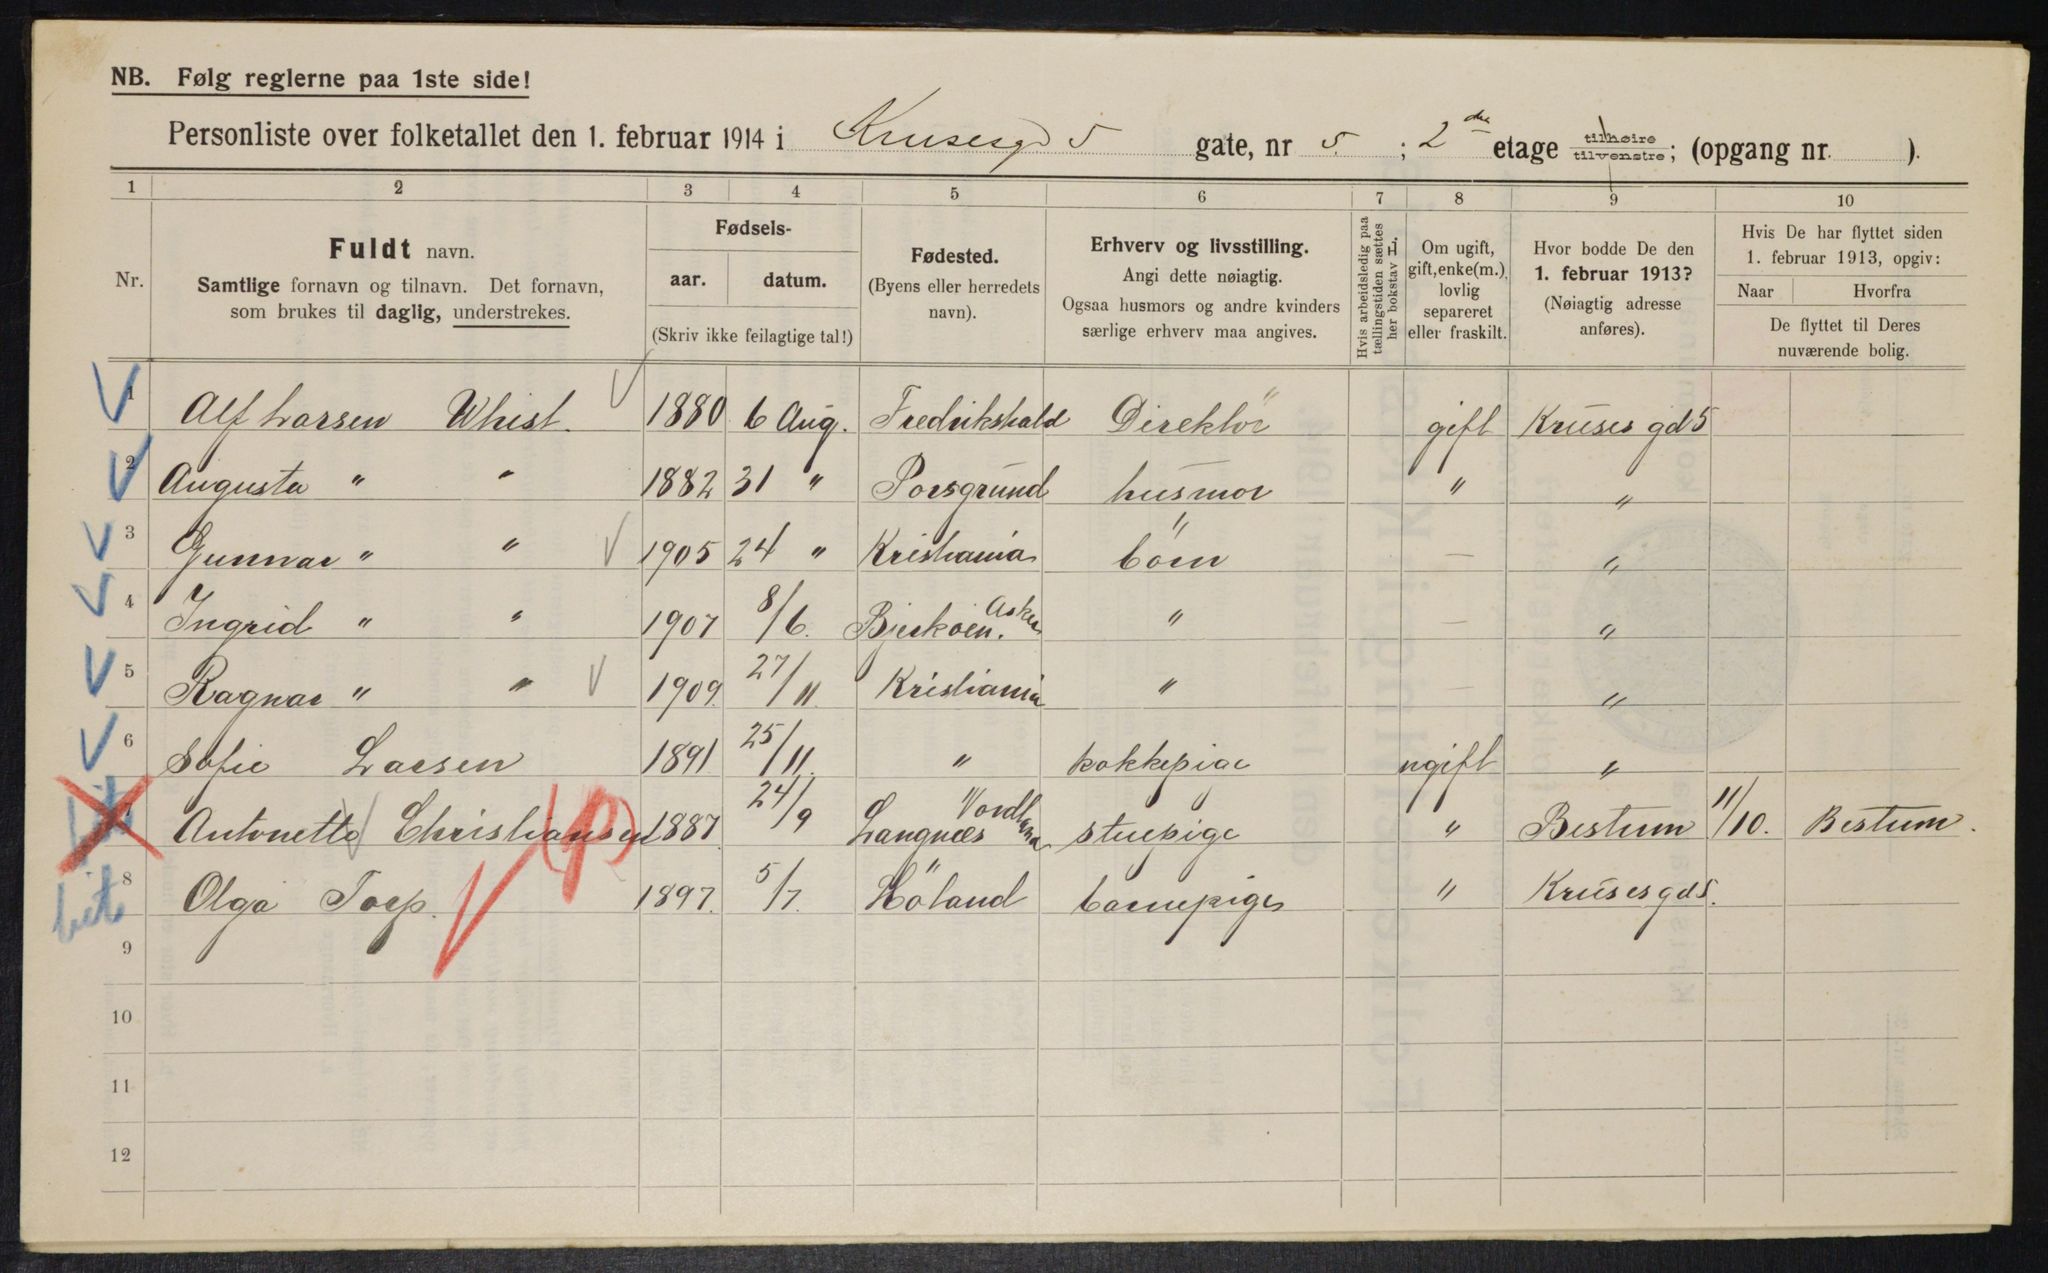 NB. Følg reglerne paa 1ste side!
Personliste over folketallet den 1. februar 1914 i Krusesgd 5 gate, nr 5. ; 2den etage tilhøire tilvenstre; (opgang nr. ).
1 2 3 4 5 6 7 8 9 10
Nr.
Fuldt navn.
Samtlige fornavn og tilnavn. Det fornavn,
som brukes til daglig, understrekes.
Fødsels-
aar. datum.
(Skriv ikke feilagtige tal!)
Fødested.
(Byens eller herredets
navn).
Erhverv og livsstilling.
Angi dette nøiagtig.
Ogsaa husmors og andre kvinders
særlige erhverv maa angives.
Hvis arbeidsledig paa
tællingstiden sættes
her bokstav L.
Om ugift,
gift, enke(m.),
lovlig
separeret
eller fraskilt.
Hvor bodde De den
1. februar 1913?
(Nøiagtig adresse
anføres).
Hvis De har flyttet siden
1. februar 1913, opgiv:
Naar Hvorfra
De flyttet til Deres
nuværende bolig.
1 Alf Larsen Whist. 1880 6 Aug. Fredrikshald Direktör gift Kruses gd 5
2 Augusta " " 1882 31 " Porsgrund husmor " "
3 Gunnar " " 1905 24 " Kristiania börn — "
4 Ingrid " " 1907 8/6. Bjerkøen. Asker " — "
5 Ragnar " " 1909. 27/11. Kristiania " — "
6 Sofie Larsen 1891 25/11. " kokkepige ugift "
7 Antonette Christiansen (p) 1887. 24/9 Langnæs Nordland stuepige " Bestum 11/10. Bestum.
8 Olga Torp. 1897. 5/7. Höland barnepige " Kruses gd 5.
9
10
11
12